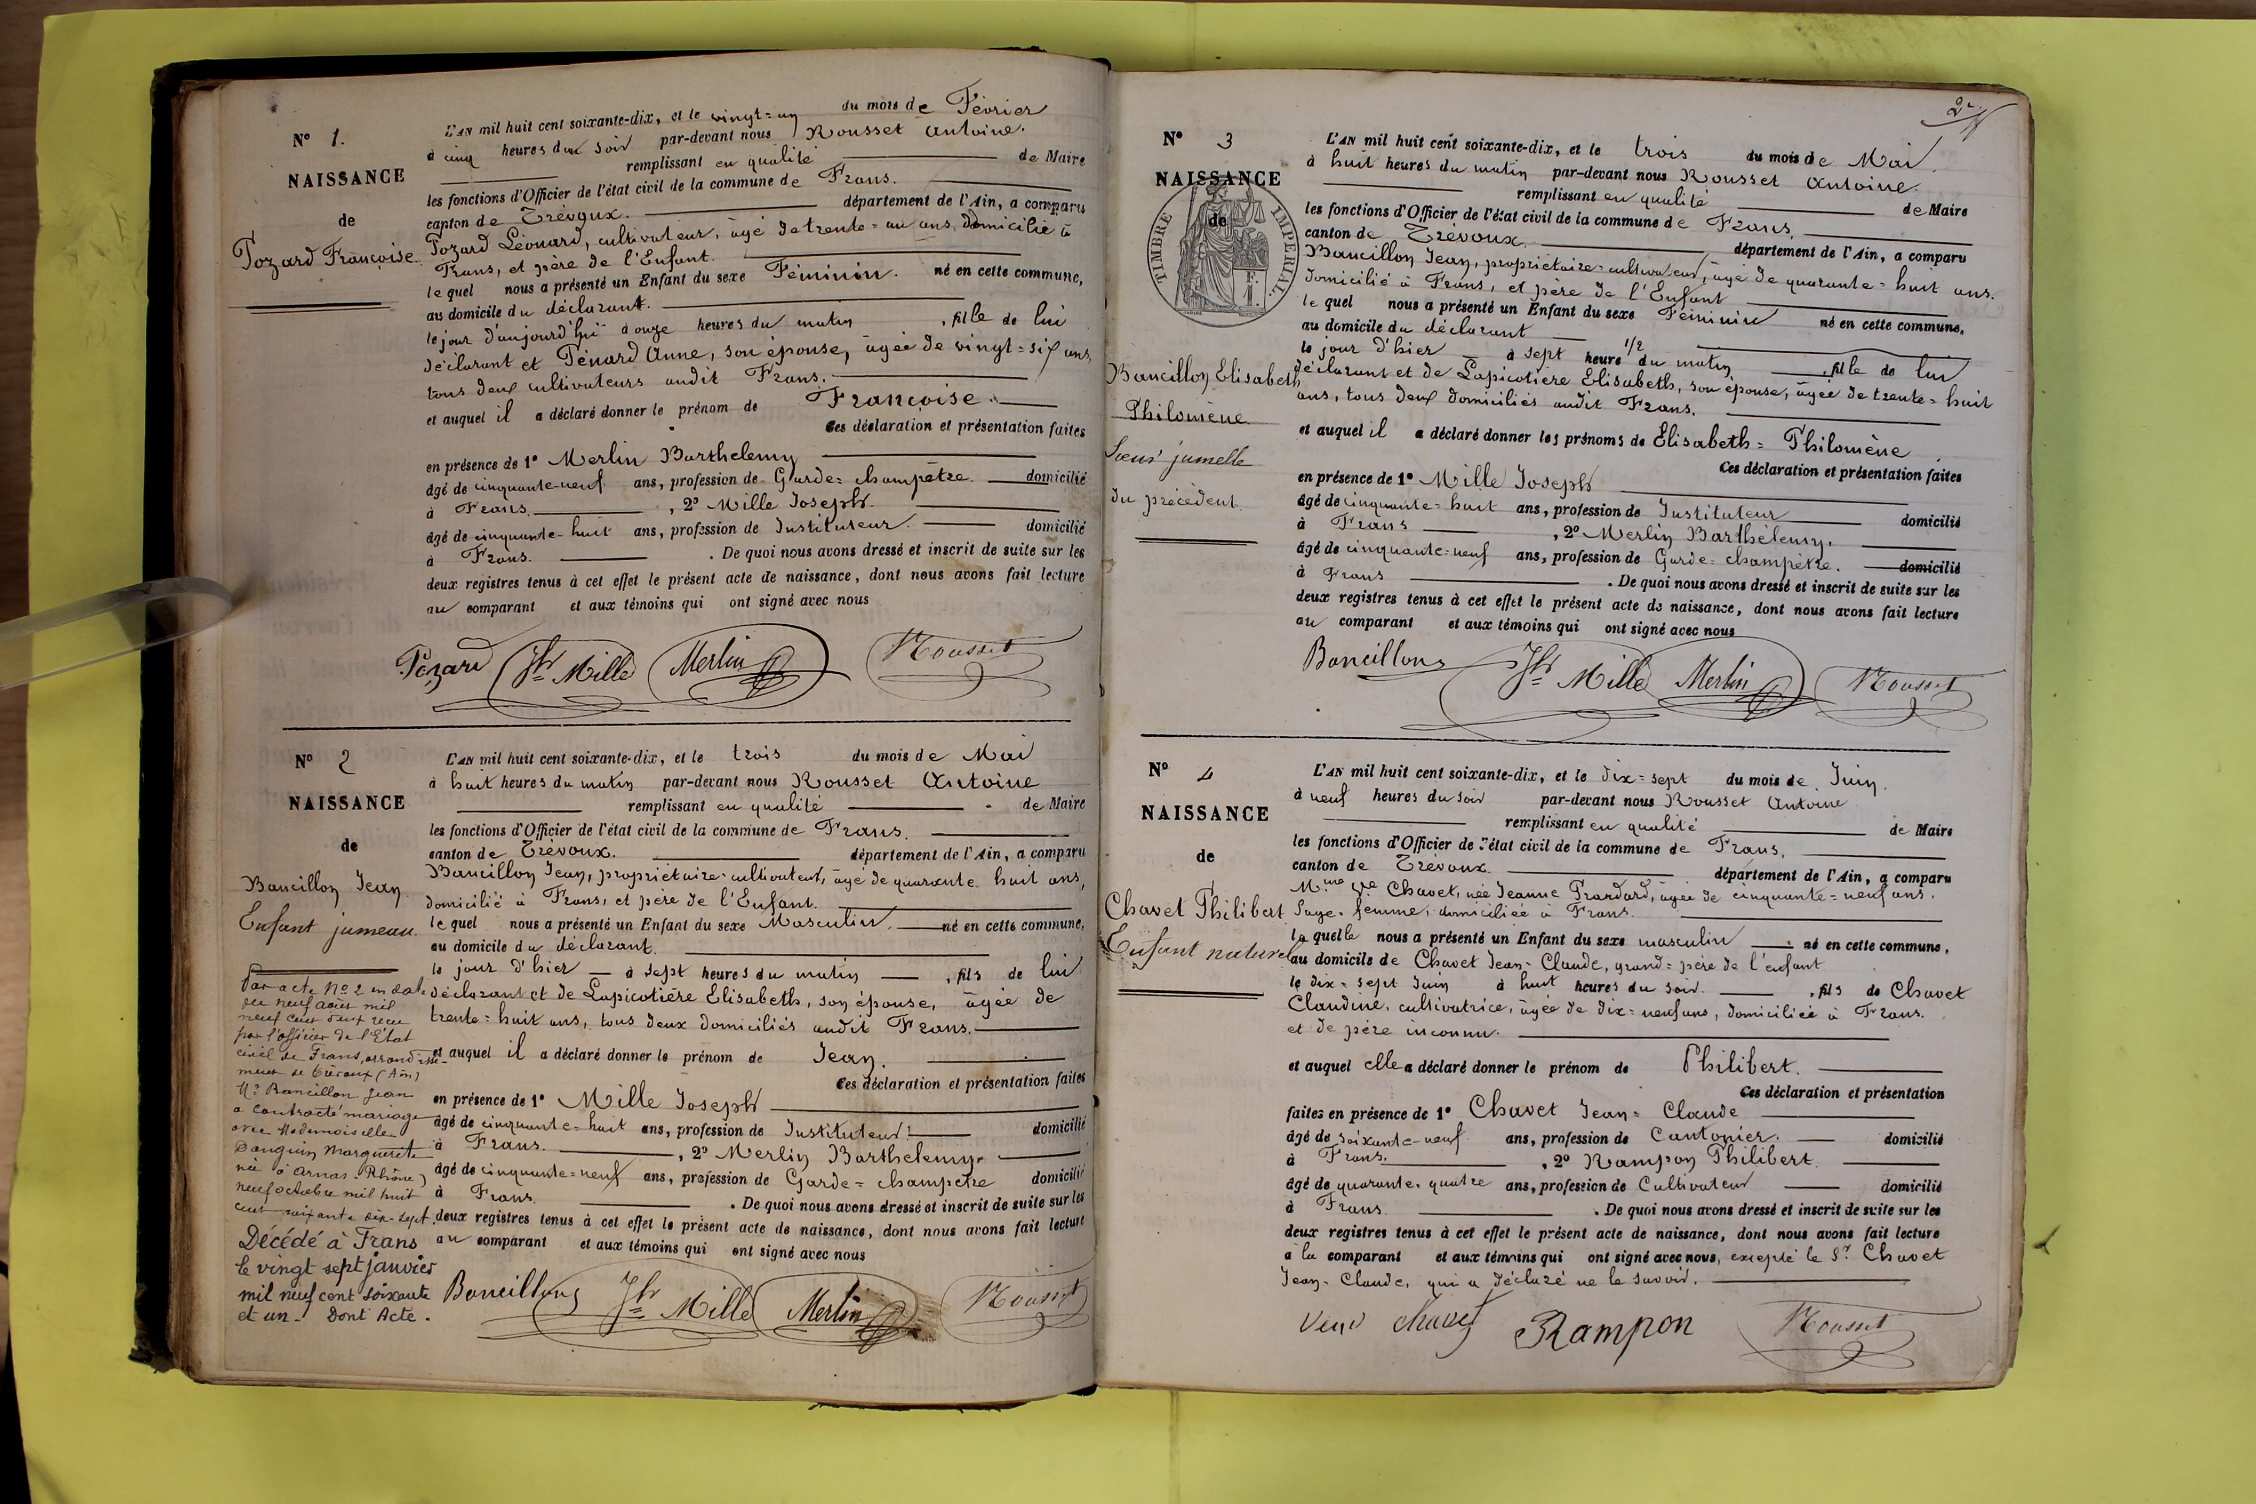 N° 1.
NAISSANCE
de
Pozard Françoise
L'AN mil huit cent soixante-dix, et le vingt=un du mois de Février
à cinq heures du soir par-devant nous Rousset Antoine.
remplissant en qualité de Maire
les fonctions d'Officier de l'état civil de la commune de Frans.
canton de Trévoux. département de l'Ain, a comparu
Pozard Léonard, cultivateur, âgé de trente=un ans, domicilié à
Frans, et père de l'Enfant.
lequel nous a présenté un Enfant du sexe Féminin. né en cette commune,
au domicile du déclarant.
le jour d'aujourd'hui à onze heures du matin, fille de lui
déclarant et Pénard Anne, son épouse, âgée de vingt=six ans,
tous deux cultivateurs audit Frans.
et auquel il a déclaré donner le prénom de Françoise.
Ces déclaration et présentation faites
en présence de 1° Merlin Barthelemy
âgé de cinquante-neuf ans, profession de Garde=champêtre. domicilié
à Frans. , 2° Mille Joseph.
âgé de cinquante-huit ans, profession de Instituteur. domicilié
à Frans. . De quoi nous avons dressé et inscrit de suite sur les
deux registres tenus à cet effet le présent acte de naissance, dont nous avons fait lecture
au comparant et aux témoins qui ont signé avec nous
Pozard Jh Mille Merlin Rousset
N° 2
NAISSANCE
de
Bancillon Jean
Enfant jumeau.
L'AN mil huit cent soixante-dix, et le trois du mois de Mai
à huit heures du matin par-devant nous Rousset Antoine
remplissant en qualité de Maire
les fonctions d'Officier de l'état civil de la commune de Frans.
canton de Trévoux. département de l'Ain, a comparu
Bancillon Jean, propriétaire=cultivateur, âgé de quarante huit ans,
domicilié à Frans, et père de l'Enfant.
lequel nous a présenté un Enfant du sexe Masculin. né en cette commune,
au domicile du déclarant.
le jour d'hier à sept heures du matin, fils de lui
déclarant et de Lapicotière Elisabeth, son épouse, âgée de
trente=huit ans, tous deux domiciliés audit Frans.
et auquel il a déclaré donner le prénom de Jean.
Ces déclaration et présentation faites
en présence de 1° Mille Joseph
âgé de cinquante=huit ans, profession de Instituteur. domicilié
à Frans. , 2° Merlin Barthelemy.
âgé de cinquante=neuf ans, profession de Garde=champêtre domicilié
à Frans . De quoi nous avons dressé et inscrit de suite sur les
deux registres tenus à cet effet le présent acte de naissance, dont nous avons fait lecture
au comparant et aux témoins qui ont signé avec nous
Bancillon Jh Mille Merlin Rousset
Par acte N° 2 en date
du neuf août mil
neuf cent reçu
par l'officier de l'Etat
civil de Frans, arrondisse-
ment de Trévoux (Ain)
Mr Bancillon Jean
a contracté mariage
avec Mademoiselle
Danguin Marguerite
née à Arnas (Rhône)
neuf octobre mil huit
cent soixante dix-sept.
Décédé à Frans
le vingt sept janvier
mil neuf cent soixante
et un. Dont Acte.
2e
N° 3
NAISSANCE
de
TIMBRE IMPERIAL.
Bancillon Elisabeth
Philomène
Soeur jumelle
du précédent.
L'AN mil huit cent soixante-dix, et le trois du mois de Mai
à huit heures du matin par-devant nous Rousset Antoine.
remplissant en qualité de Maire
les fonctions d'Officier de l'état civil de la commune de Frans.
canton de Trévoux. département de l'Ain, a comparu
Bancillon Jean, propriétaire=cultivateur, âgé de quarante=huit ans.
domicilié à Frans, et père de l'Enfant
lequel nous a présenté un Enfant du sexe Féminin né en cette commune,
au domicile du déclarant
le jour d'hier à sept heure 1/2 du matin, fille de lui
déclarant et de Lapicotière Elisabeth, son épouse, âgée de trente=huit
ans, tous deux domiciliés audit Frans.
et auquel il a déclaré donner les prénoms de Elisabeth=Philomène
Ces déclaration et présentation faites
en présence de 1° Mille Joseph
âgé de cinquante=huit ans, profession de Instituteur domicilié
à Frans , 2° Merlin Barthélemy.
âgé de cinquante=neuf ans, profession de Garde=champêtre. domicilié
à Frans . De quoi nous avons dressé et inscrit de suite sur les
deux registres tenus à cet effet le présent acte de naissance, dont nous avons fait lecture
au comparant et aux témoins qui ont signé avec nous
Bancillon Jh Mille Merlin Rousset
N° 4
NAISSANCE
de
Chavet Philibert
Enfant naturel
L'AN mil huit cent soixante-dix, et le dix=sept du mois de Juin.
à neuf heures du soir par-devant nous Rousset Antoine
remplissant en qualité de Maire
les fonctions d'Officier de l'état civil de la commune de Frans.
canton de Trévoux. département de l'Ain, a comparu
Mme Vve Chavet, née Jeanne Prardard, âgée de cinquante=neuf ans.
Sage=femme, domiciliée à Frans.
laquelle nous a présenté un Enfant du sexe masculin né en cette commune,
au domicile de Chavet Jean=Claude, grand=père de l'enfant
le dix=sept Juin à huit heures du soir. , fils de Chavet
Claudine, cultivatrice, âgée de dix=neuf ans, domiciliée à Frans.
et de père inconnu.
et auquel elle a déclaré donner le prénom de Philibert.
Ces déclaration et présentation
faites en présence de 1° Chavet Jean=Claude
âgé de soixante-neuf ans, profession de Cantonier. domicilié
à Frans. , 2° Rampon Philibert.
âgé de quarante-quatre ans, profession de Cultivateur domicilié
à Frans. . De quoi nous avons dressé et inscrit de suite sur les
deux registres tenus à cet effet le présent acte de naissance, dont nous avons fait lecture
à la comparant et aux témoins qui ont signé avec nous, excepté le Sr Chavet
Jean-Claude, qui a déclaré ne le savoir.
chavet Rampon Rousset